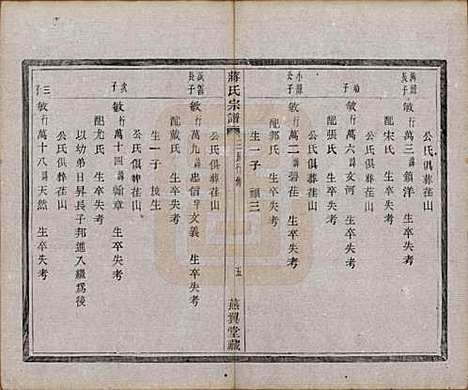 公氏俱葬茬山
長子 敏行萬三諱鎖洋 生卒失考
配宋氏 生卒失考
公氏俱葬茬山
幼子 敏行萬六諱文河 生卒失考
配張氏 生卒失考
公氏俱葬茬山
公子 敏行萬二諱君茬 生卒失考
配郭氏 生卒失考
生一子 頭三
蔣氏宗譜
五
燕翼堂藏
長子 敏行萬九諱忠信字文義 生卒失考
配戴氏 生卒失考
生一子
次子 敏行萬十四諱翰章 生卒失考
配尤氏 生卒失考
公氏俱葬茬山
以幼弟日昇長子邦進入繼為後
三子 敏行萬十八諱天然 生卒失考